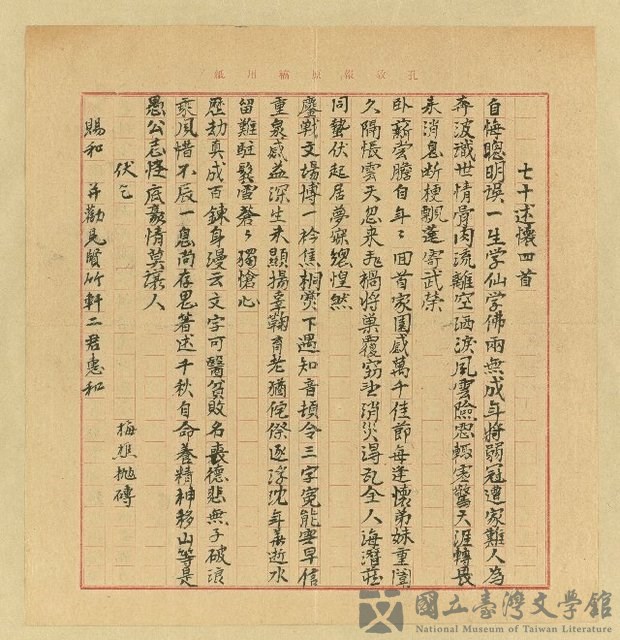 孔教報原稿用紙
七十述懷四首
自悔聰明誤一生学仙学佛兩無成年将弱冠遭家難人為
奔波識世情骨肉流離空洒淚風雲險惡輒虛驚天涯轉
未消息断梗飄蓬寄武荣
卧薪嘗膽自年々回首家園感萬千佳節每逢懷弟妹重闈
久隔悵雲天忽来飛禍将巢覆窃喜消災得瓦全人海潛蹤
同蟄伏起居夢寐總惶然
鏖戰文場博一衿焦桐爨下遇知音頓令三字冤能雪早信
重泉感益深生未顯揚辜鞠育老猶侘傺逐浮沈年華逝水
留難駐鬢雪磬々獨愴心
歷劫真成百鍊身漫云文字可醫貧敗名喪德悲無子破浪
乘風惜不辰一息尚存思著述千秋自命養精神移山等是
愚公志怪底豪情莫讓人
伏乞 梅樵拋磚
賜和 并勸尾賢竹軒二君惠和
國立臺灣文學館
National Museum of Taiwan Literature